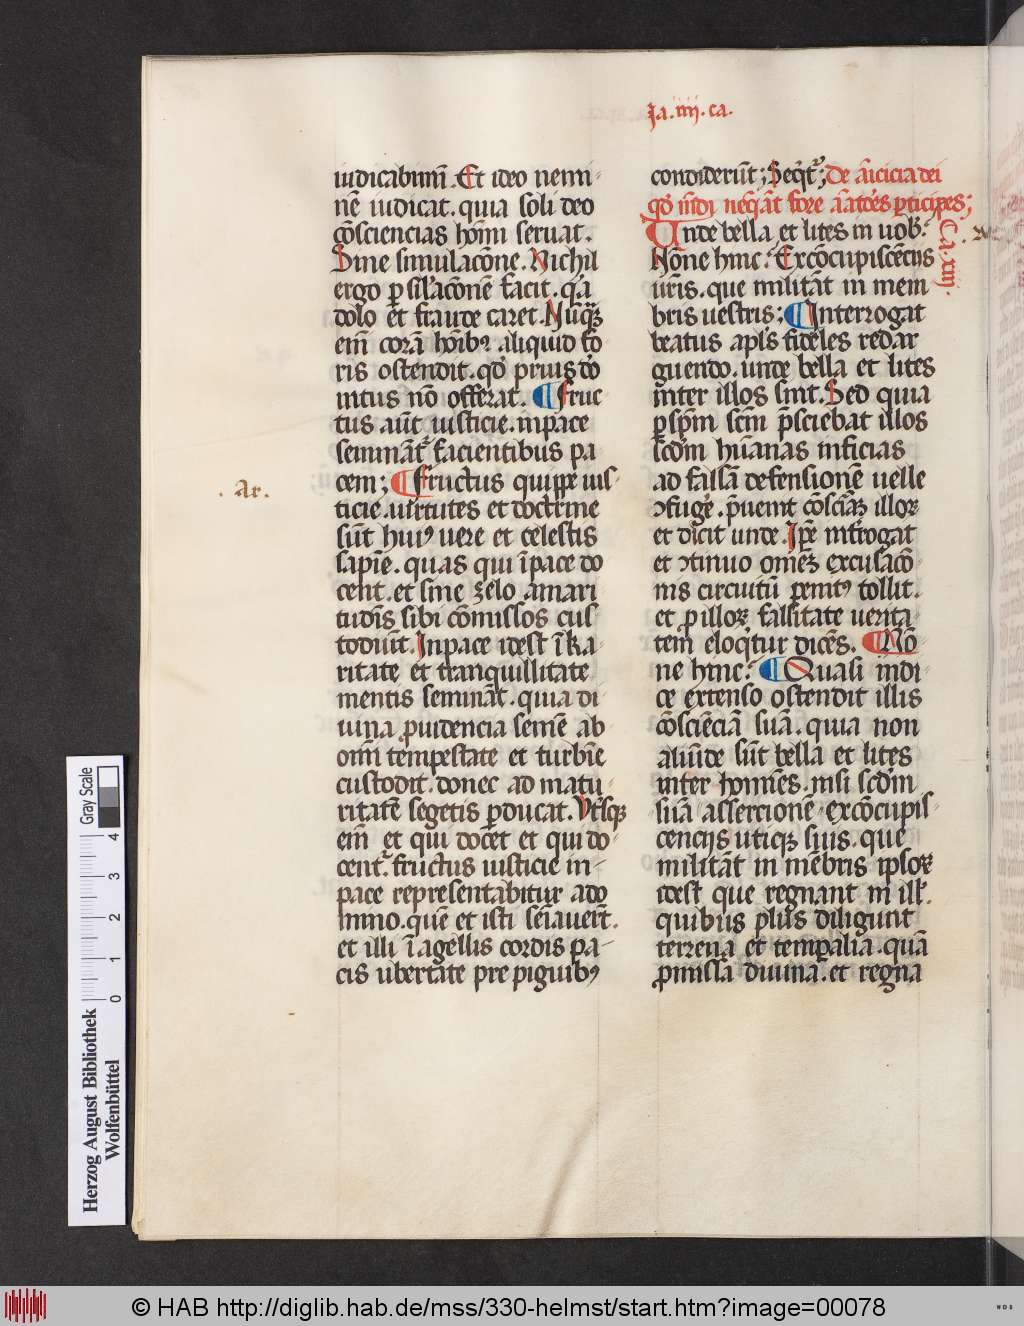 Ia.iiii.ca.
iudicabimini. Et ideo nemi-
nē iudicat. quia soli deo
cōsciencias homī seruat.
Sine simulacōne. Nichil
ergo p̱ silˀacōnē facit. qᵃ a
dolo et fraude caret. Nūqꝫ
em̄ corā hōībꝰ aliquid fo
ris ostendit. qd̓ prius do
intus nō offerat. ¶ Fruc
tus aūt iusticie. inpace
seminātᵉ facientibus pa
cem; ¶ Fructus quippe ius-
. Ar.
ticie. uirtutes et doctrine
sūt huiꝰ uere et celestis
sapīe. quas qui īpace do
cent. et sine zelo amari
tudīs sibi cōmissos cus
todiūt. Inpace idest ī ka
ritate et tranquillitate
mentis semināt. quia di
uina ꝓuidencia semē ab
om̄i tempestate et turbīe
custodit. donec ad matu-
ritatē segetis ꝑducat. Utˀsqꝫ
em̄ et qui docet et qui do-
centᵉ. fructus iusticie in-
pace representabitur a do
mino. quē et isti semīauerīt.
et illi ī agellis cordis pa-
cis ubertate pre piguibꝰ
condiderūt; Seqītᵉ; De aīcicia dei
qd̓ mūdi neqāt fore aātores ꝑticipes;
Ca. xiij.
Unde bella et lites in uob̄.
Nōne hinc. Ex cōcupiscēcijs
ur̄is. que militāt in mem
bris uestris; ¶ Interrogat
beatus apl̄s fideles redar
guendo. unde bella et lites
inter illos sint. Sed quia
ꝑ sp̄m sc̄m p̄sciebat illos
scd̄m hūanas inficias
ad falsā defensionē uelle
ꝯfugˀe. p̄uenit cōsciāꝫ illoꝝ
et dicit unde. Ip̄e intˀrogat
et ꝯtinuo om̄eꝫ excusacō
nis circuitū p̱enitꝰ tollit.
et p̱ illoꝝ falsitate uerita
tem eloqītur dicēs. ¶ Nō-
ne hinc. ¶ Quasi indi-
ce extenso ostendit illis
cōsciēciā suā. quia non
aliūde sūt bella et lites
inter homīes. nisi scd̄m
suā assercionē ex cōcupis-
cencijs utiqꝫ suis. que
militāt in mēbris ip̄soꝝ
idest que regnant in ill̄.
quibus plus diligunt
terrena et temp̱alia. quā
ꝓmissā diuinā. et regna
Herzog August Bibliothek
Wolfenbüttel
0 1 2 3 4
Gray Scale
© HAB http://diglib.hab.de/mss/330-helmst/start.htm?image=00078